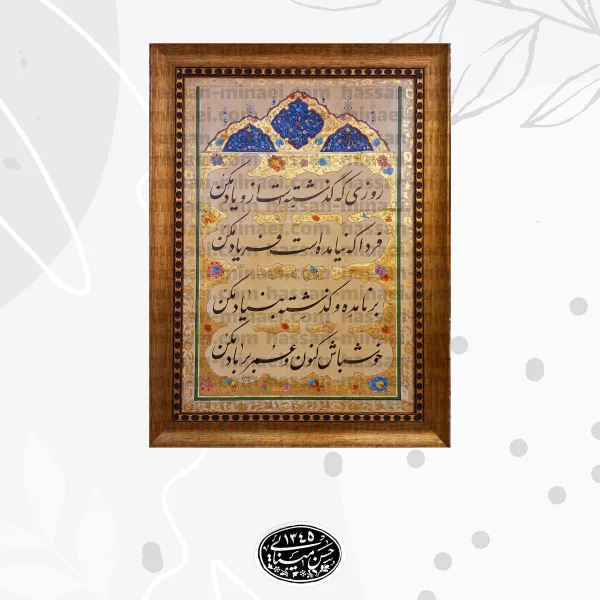 روزی که گذشته است ازو یاد مکن
فردا که نیامده است فریاد مکن
بر نامده و گذشته بنیاد مکن
خوش باش کنون و عمر بر باد مکن
حسن مینایی
۱۳۴۵
hassan-minaei.com